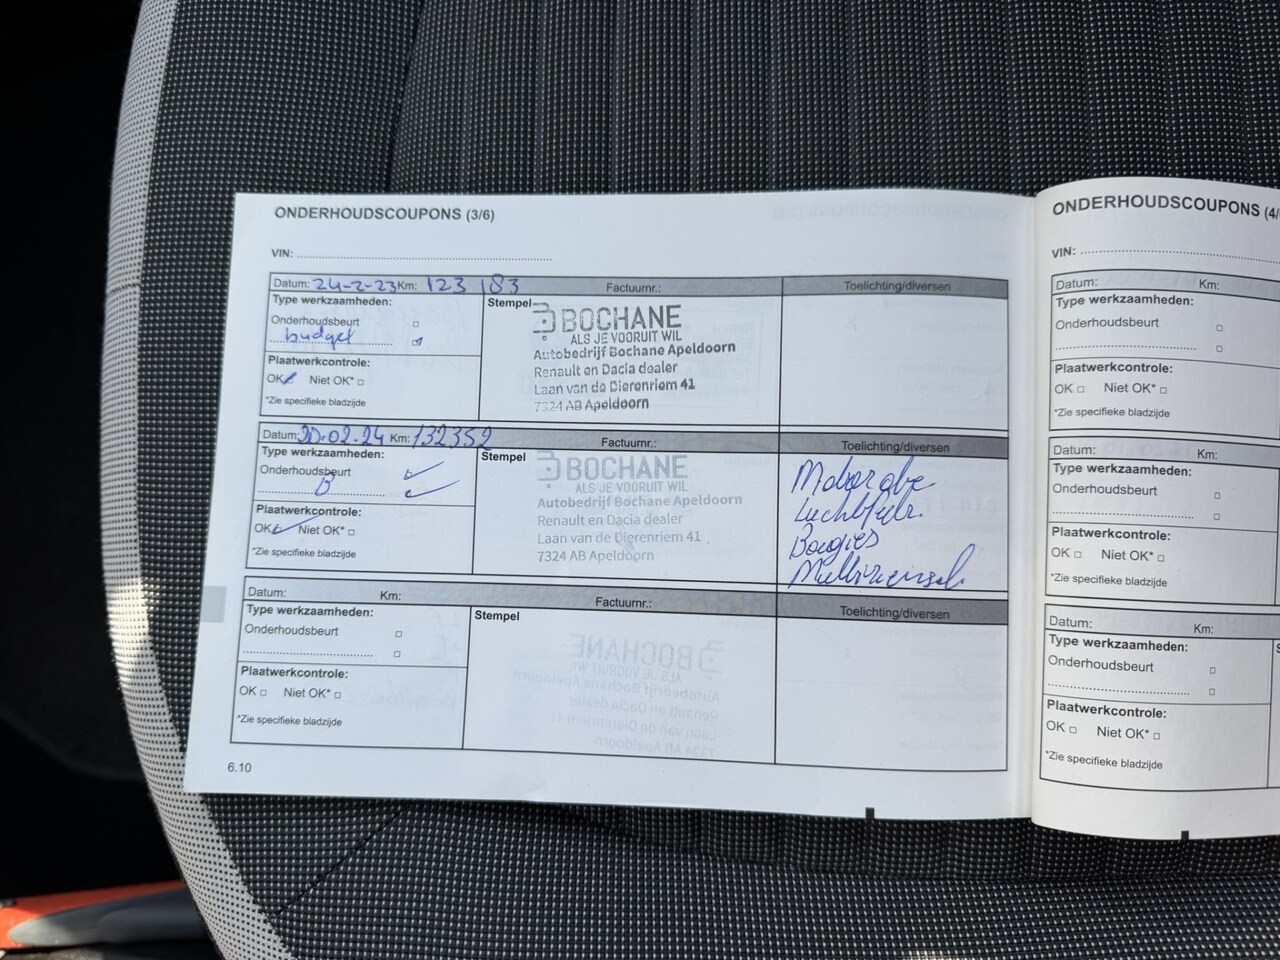 ONDERHOUDSCOUPONS (3/6)
VIN:
Datum: 24-2-23 Km: 123 183 Factuurnr.: Toelichting/diversen
Type werkzaamheden:
Stempel
Onderhoudsbeurt
budget
Plaatwerkcontrole:
OK Niet OK*
*Zie specifieke bladzijde
BOCHANE
ALS JE VOORUIT WIL
Autobedrijf Bochane Apeldoorn
Renault en Dacia dealer
Laan van de Dierenriem 41
7324 AB Apeldoorn
Datum: 20-02-24 Km: 132352 Factuurnr.: Toelichting/diversen
Type werkzaamheden:
Stempel
Onderhoudsbeurt
B
Plaatwerkcontrole:
OK Niet OK*
*Zie specifieke bladzijde
BOCHANE
ALS JE VOORUIT WIL
Autobedrijf Bochane Apeldoorn
Renault en Dacia dealer
Laan van de Dierenriem 41
7324 AB Apeldoorn
Bougies
Datum: Km: Factuurnr.: Toelichting/diversen
Type werkzaamheden:
Stempel
Onderhoudsbeurt
Plaatwerkcontrole:
OK Niet OK*
*Zie specifieke bladzijde
6.10
ONDERHOUDSCOUPONS (4/
VIN:
Datum: Km:
Type werkzaamheden:
Onderhoudsbeurt
Plaatwerkcontrole:
OK Niet OK*
*Zie specifieke bladzijde
Datum: Km:
Type werkzaamheden:
Onderhoudsbeurt
Plaatwerkcontrole:
OK Niet OK*
*Zie specifieke bladzijde
Datum: Km:
Type werkzaamheden:
Onderhoudsbeurt
Plaatwerkcontrole:
OK Niet OK*
*Zie specifieke bladzijde